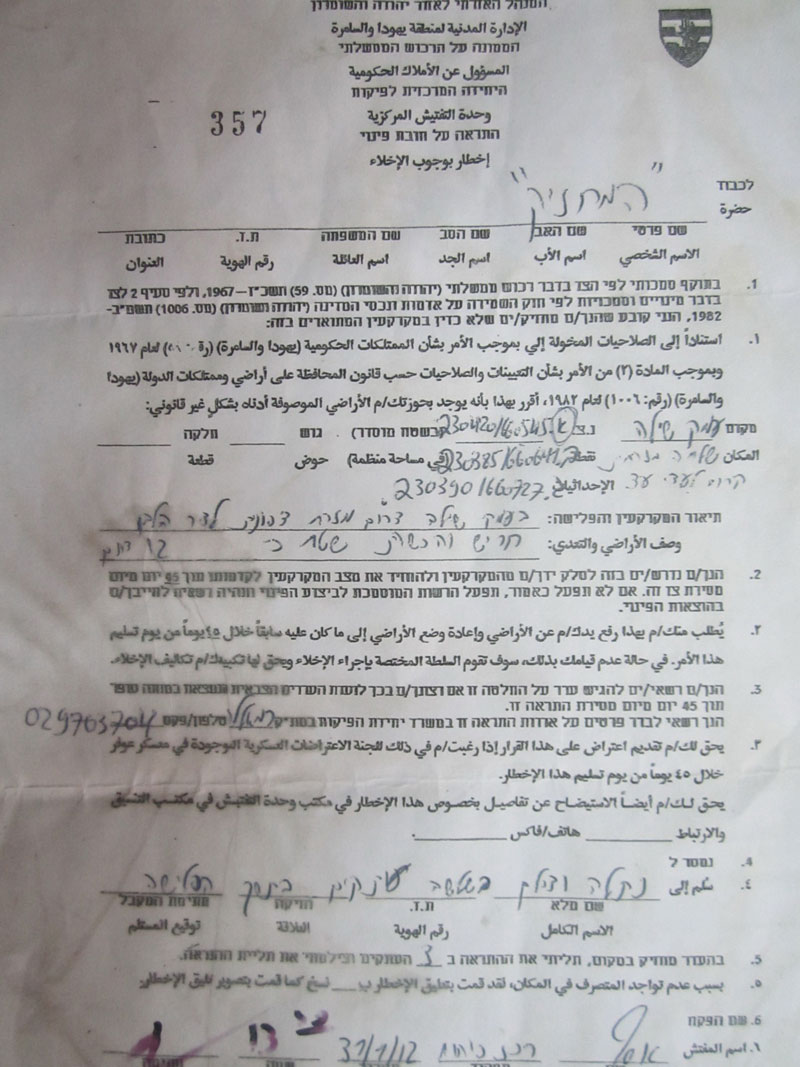 המנהל האזרחי לאזור יהודה והשומרון
الإدارة المدنية لمنطقة يهودا والسامرة
הממונה על הרכוש הממשלתי
المسؤول عن الأملاك الحكومية
היחידה המרכזית לפיקוח
وحدة التفتيش المركزية
357
התראה על חובת פינוי
إخطار بوجوب الإخلاء
לכבוד
حضرة
"המחזיק"
שם פרטי שם האב שם הסב שם המשפחה ת.ז. כתובת
الاسم الشخصي اسم الأب اسم الجد اسم العائلة رقم الهوية العنوان
1. בתוקף סמכותי לפי הצו בדבר רכוש ממשלתי (יהודה והשומרון) (מס. 59) תשכ"ז–1967, ולפי סעיף 2 לצו
בדבר מינויים וסמכויות לפי חוק השמירה על אדמות ונכסי המדינה (יהודה ושומרון) (מס. 1006) תשמ"ב–
1982, הנני קובע שהנך/ם מחזיק/ים שלא כדין במקרקעין המתוארים בזה:
١. استناداً إلى الصلاحيات المخولة إلي بموجب الأمر بشأن الممتلكات الحكومية (يهودا والسامرة) لعام ١٩٦٧
وبموجب المادة (٢) من الأمر بشأن التعيينات والصلاحيات حسب قانون المحافظة على أراضي وممتلكات الدولة (يهودا
والسامرة) (رقم: ١٠٠٦) لعام ١٩٨٢، أقرر بهذا بأنه يوجد بحوزتك/م الأراضي الموصوفة أدناه بشكل غير قانوني:
מקום עמק שילה נ.צ. (בשטח מוסדר) גוש חלקה
المكان نقطة (في مساحة منظمة) حوض قطعة
קרוב לעדי עד الإحداثيات 230390/660727
תיאור המקרקעין והפלישה: בעמק שילה דרום מזרח
وصف الأراضي والتعدي: חריש והכשרת שטח כ- 12 דונם
2. הנך/ם נדרש/ים בזה לסלק ידך/ם מהמקרקעין ולהחזיר את מצב המקרקעין לקדמותו תוך 45 יום מיום
מסירת צו זה. אם לא תפעל כאמור, תפעל הרשות המוסמכת לביצוע הפינוי ותהיה רשאית לחייבך/ם
בהוצאות הפינוי.
٢. يُطلب منك/م بهذا رفع يدك/م عن الأراضي وإعادة وضع الأراضي إلى ما كان عليه سابقاً خلال ٤٥ يوماً من يوم تسليم
هذا الأمر. في حالة عدم قيامك بذلك، سوف تقوم السلطة المختصة بإجراء الإخلاء ويحق لها تكبيدك/م تكاليف الإخلاء.
3. הנך/ם רשאי/ים להגיש ערר על החלטה זו אם רצתך/ם בכך לועדת העררים הצבאית הנמצאת במחנה עופר
תוך 45 יום מיום מסירת התראה זו.
הנך רשאי לברר פרטים על אודות התראה זו במשרד יחידת הפיקוח במת"ק טלפון/פקס 029703704
٣. يحق لك/م تقديم اعتراض على هذا القرار إذا رغبت/م في ذلك للجنة الاعتراضات العسكرية الموجودة في معسكر عوفر
خلال ٤٥ يوماً من يوم تسليم هذا الإخطار.
يحق لك/م أيضاً الاستيضاح عن تفاصيل بخصوص هذا الإخطار في مكتب وحدة التفتيش في مكتب التنسيق
والارتباط هاتف/فاكس
4. נמסר ל
٤. سُلم إلى בשטח
שם מלא ת.ז. הזיקה חתימת המקבל
الاسم الكامل رقم الهوية العلاقة توقيع المستلم
5. בהעדר מחזיק במקום, תליתי את ההתראה ב 3 העתקים וצילמתי את תליית ההתראה.
٥. بسبب عدم تواجد المتصرف في المكان، لقد قمت بتعليق الإخطار ب نسخ كما قمت بتصوير تعليق الإخطار.
6. שם הפקח
٦. اسم المفتش 31/1/12